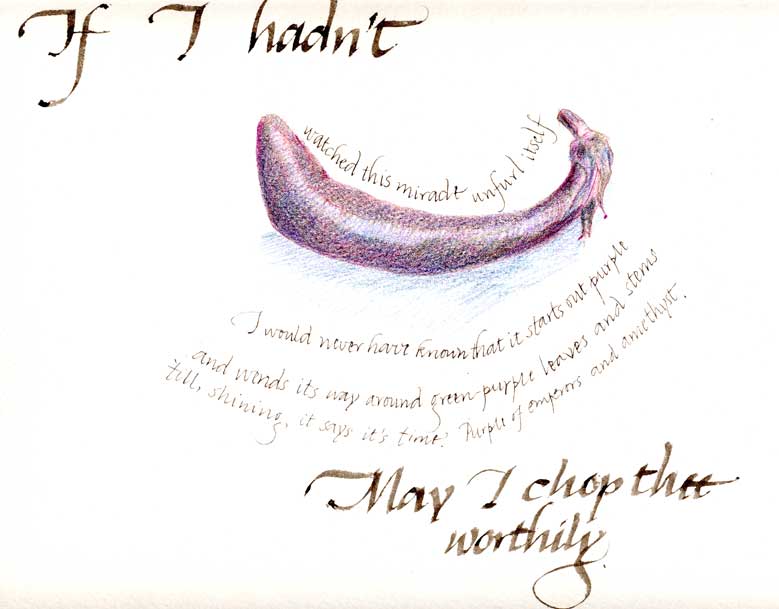 If I hadn't
watched this miracle unfurl itself
I would never have known that it starts out purple
and wends its way around green-purple leaves and stems
till, shining, it says it's time. Purple of emperors and amethyst.
May I chop thee
worthily.